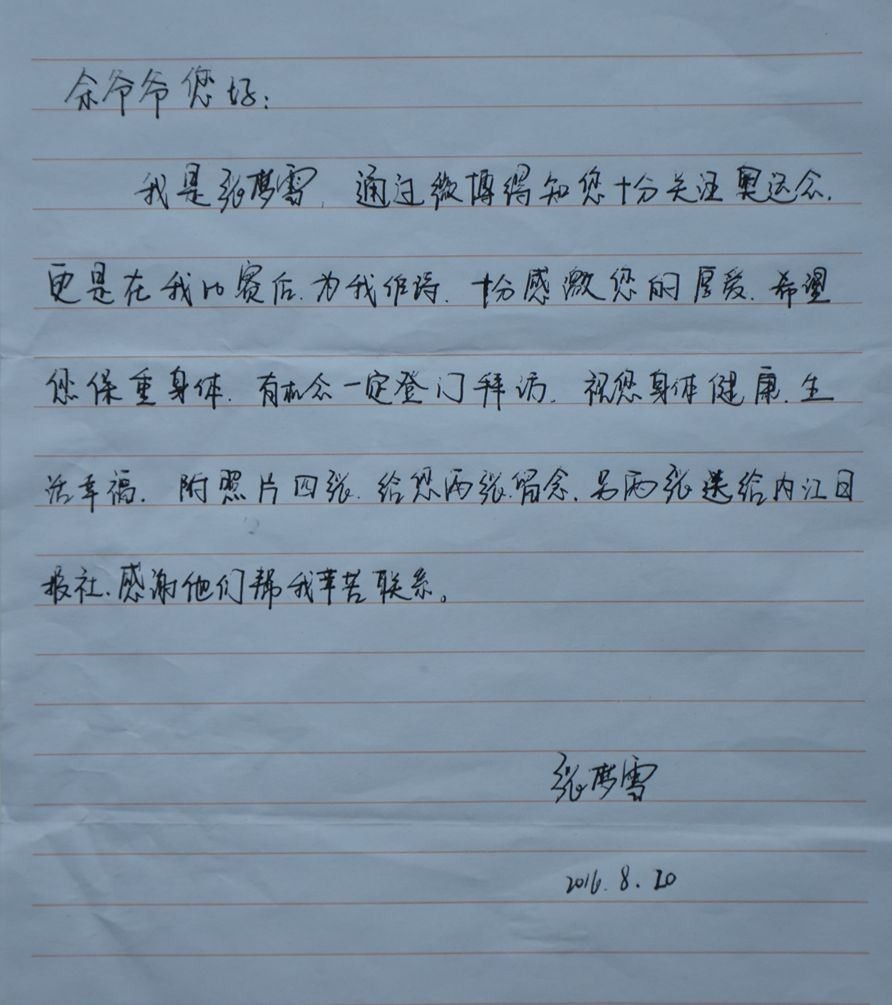 余爷爷您好:
我是张梦雪,通过微博得知您十分关注奥运会.
更是在我比赛后.为我作诗.十分感激您的厚爱.希望
您保重身体.有机会一定登门拜访.祝您身体健康.生
活幸福.附照片四张.给您两张留念.另两张送给内江日
报社.感谢他们帮我辛苦联系。
张梦雪
2016.8.20